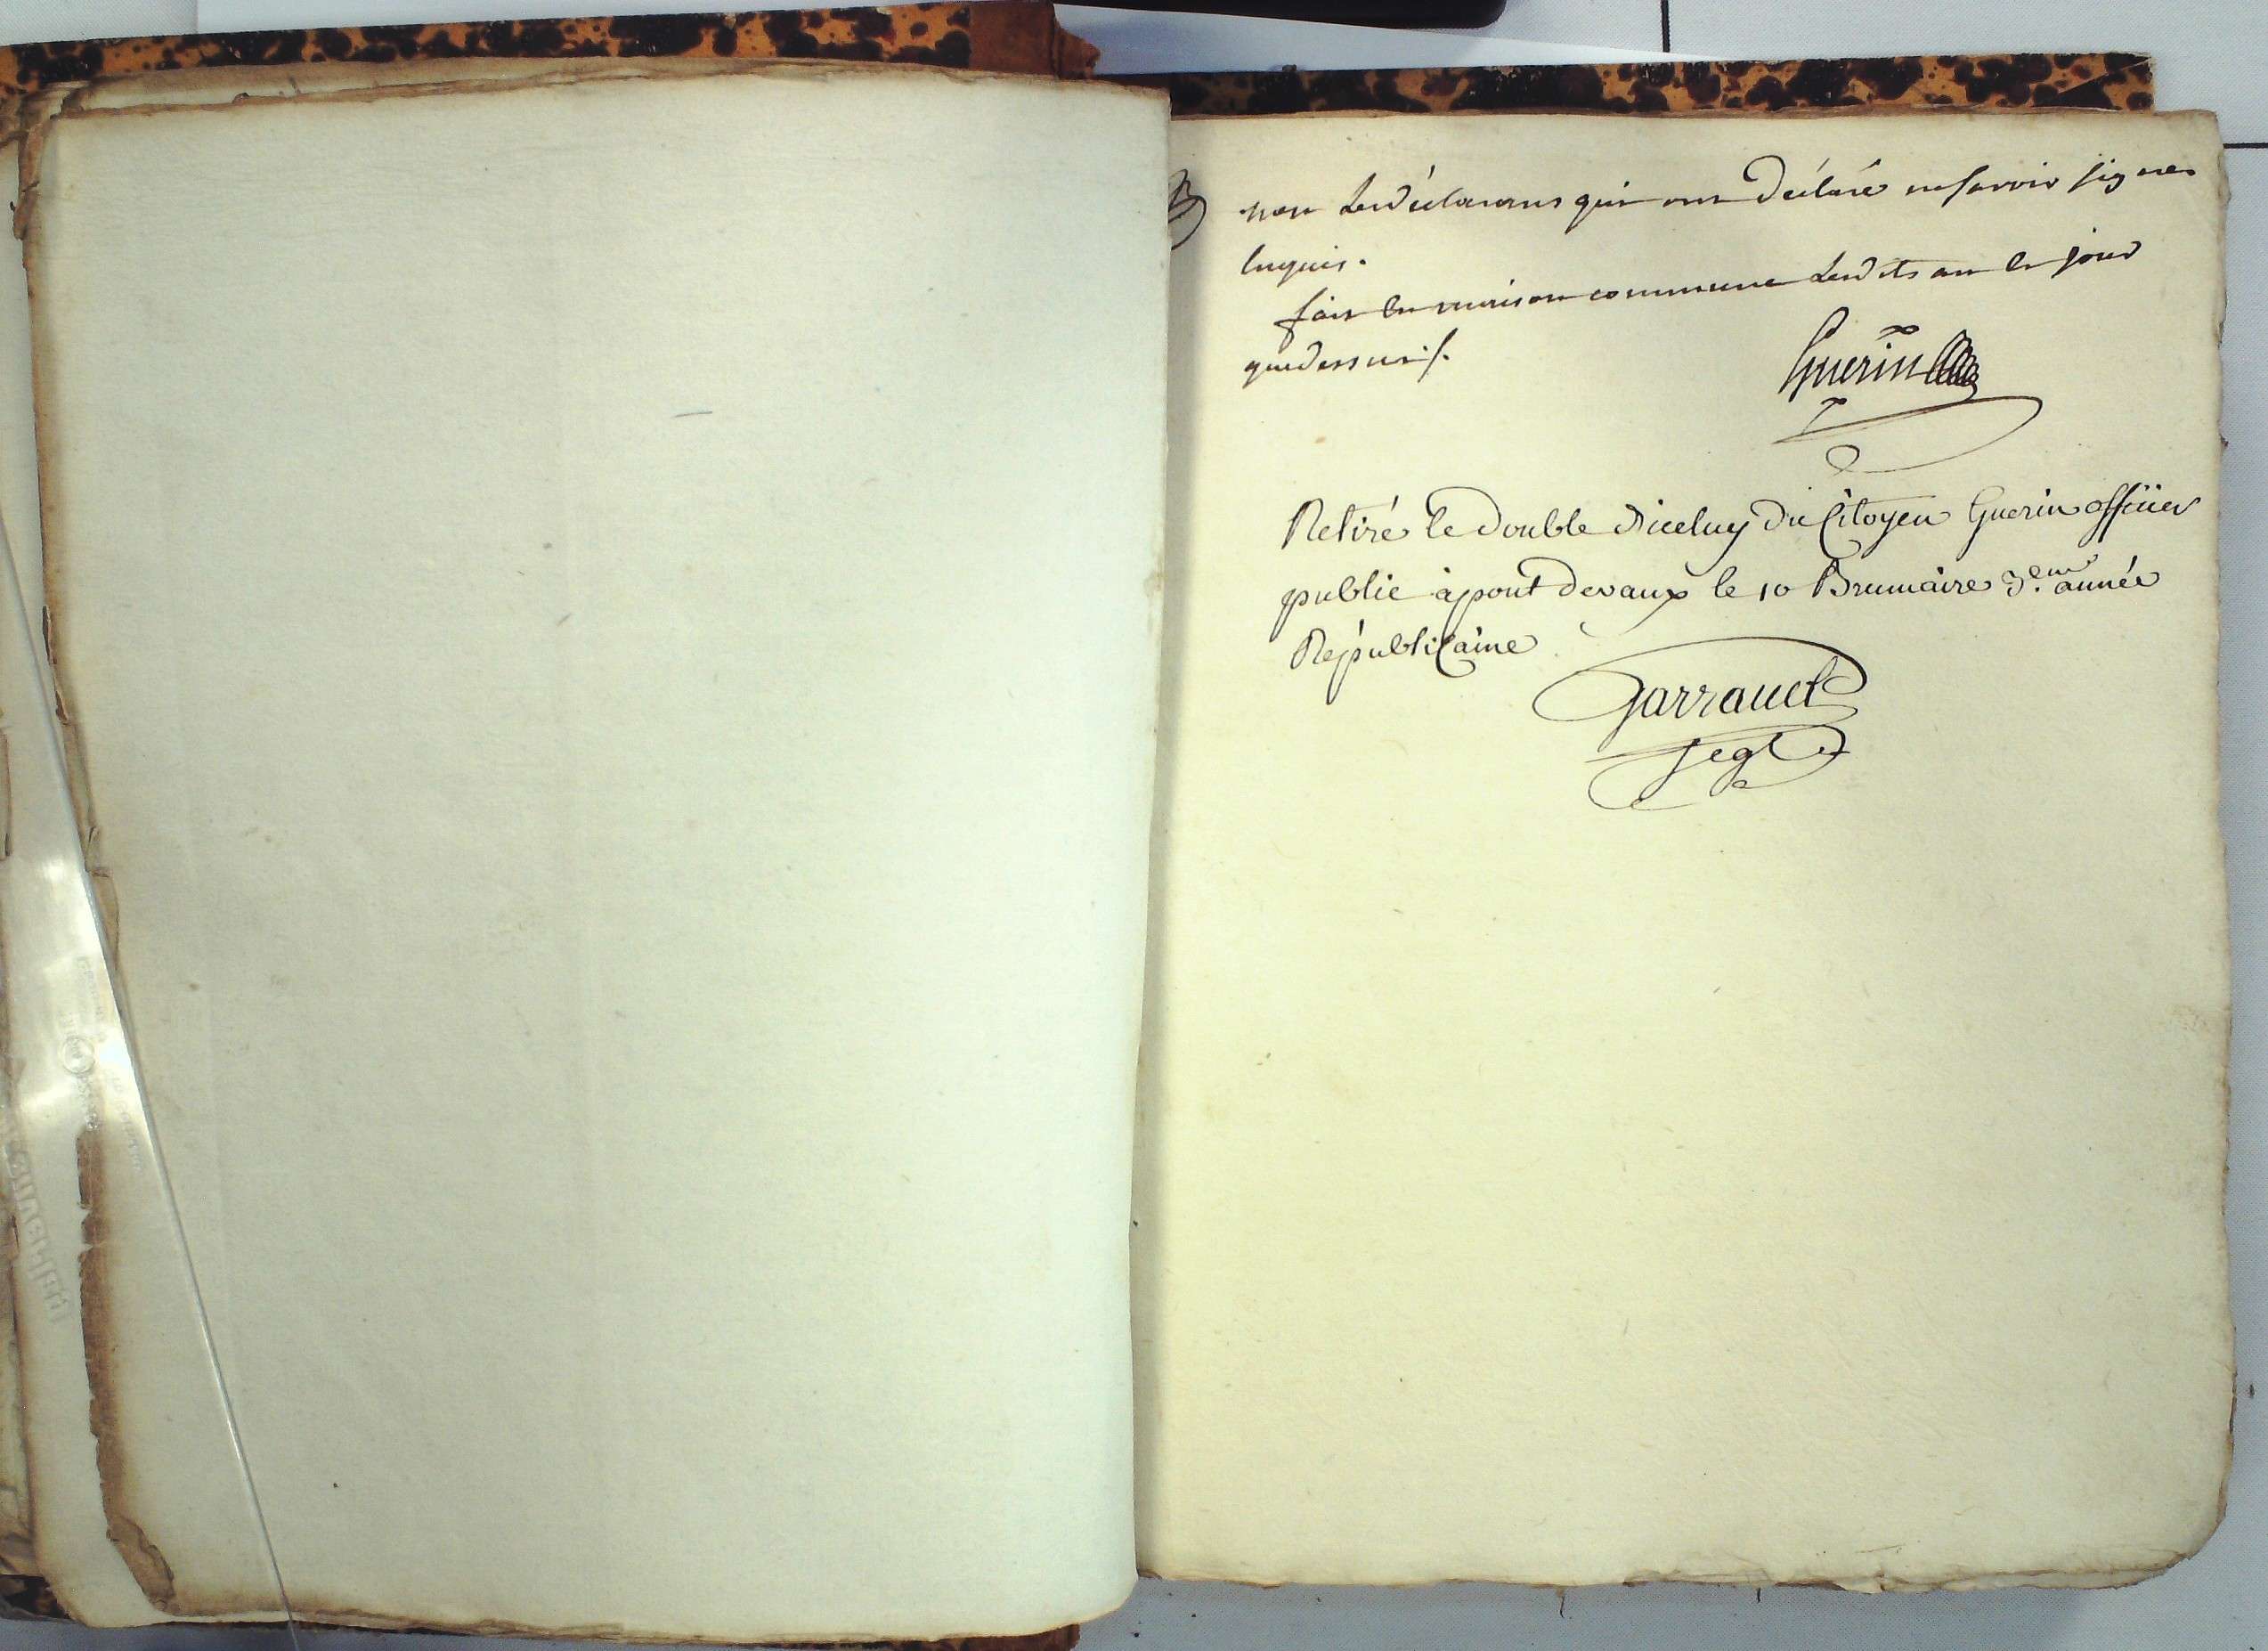 non les déclarans qui ont déclaré ne savoir signer
enquis.
fait en maison commune lesdits an et jour
que dessus ./.
Guerin
Retiré le double d'iceluy du Citoyen Guerin officier
public à pont devaux le 10 Brumaire 3.eme année
Républicaine
Garraud